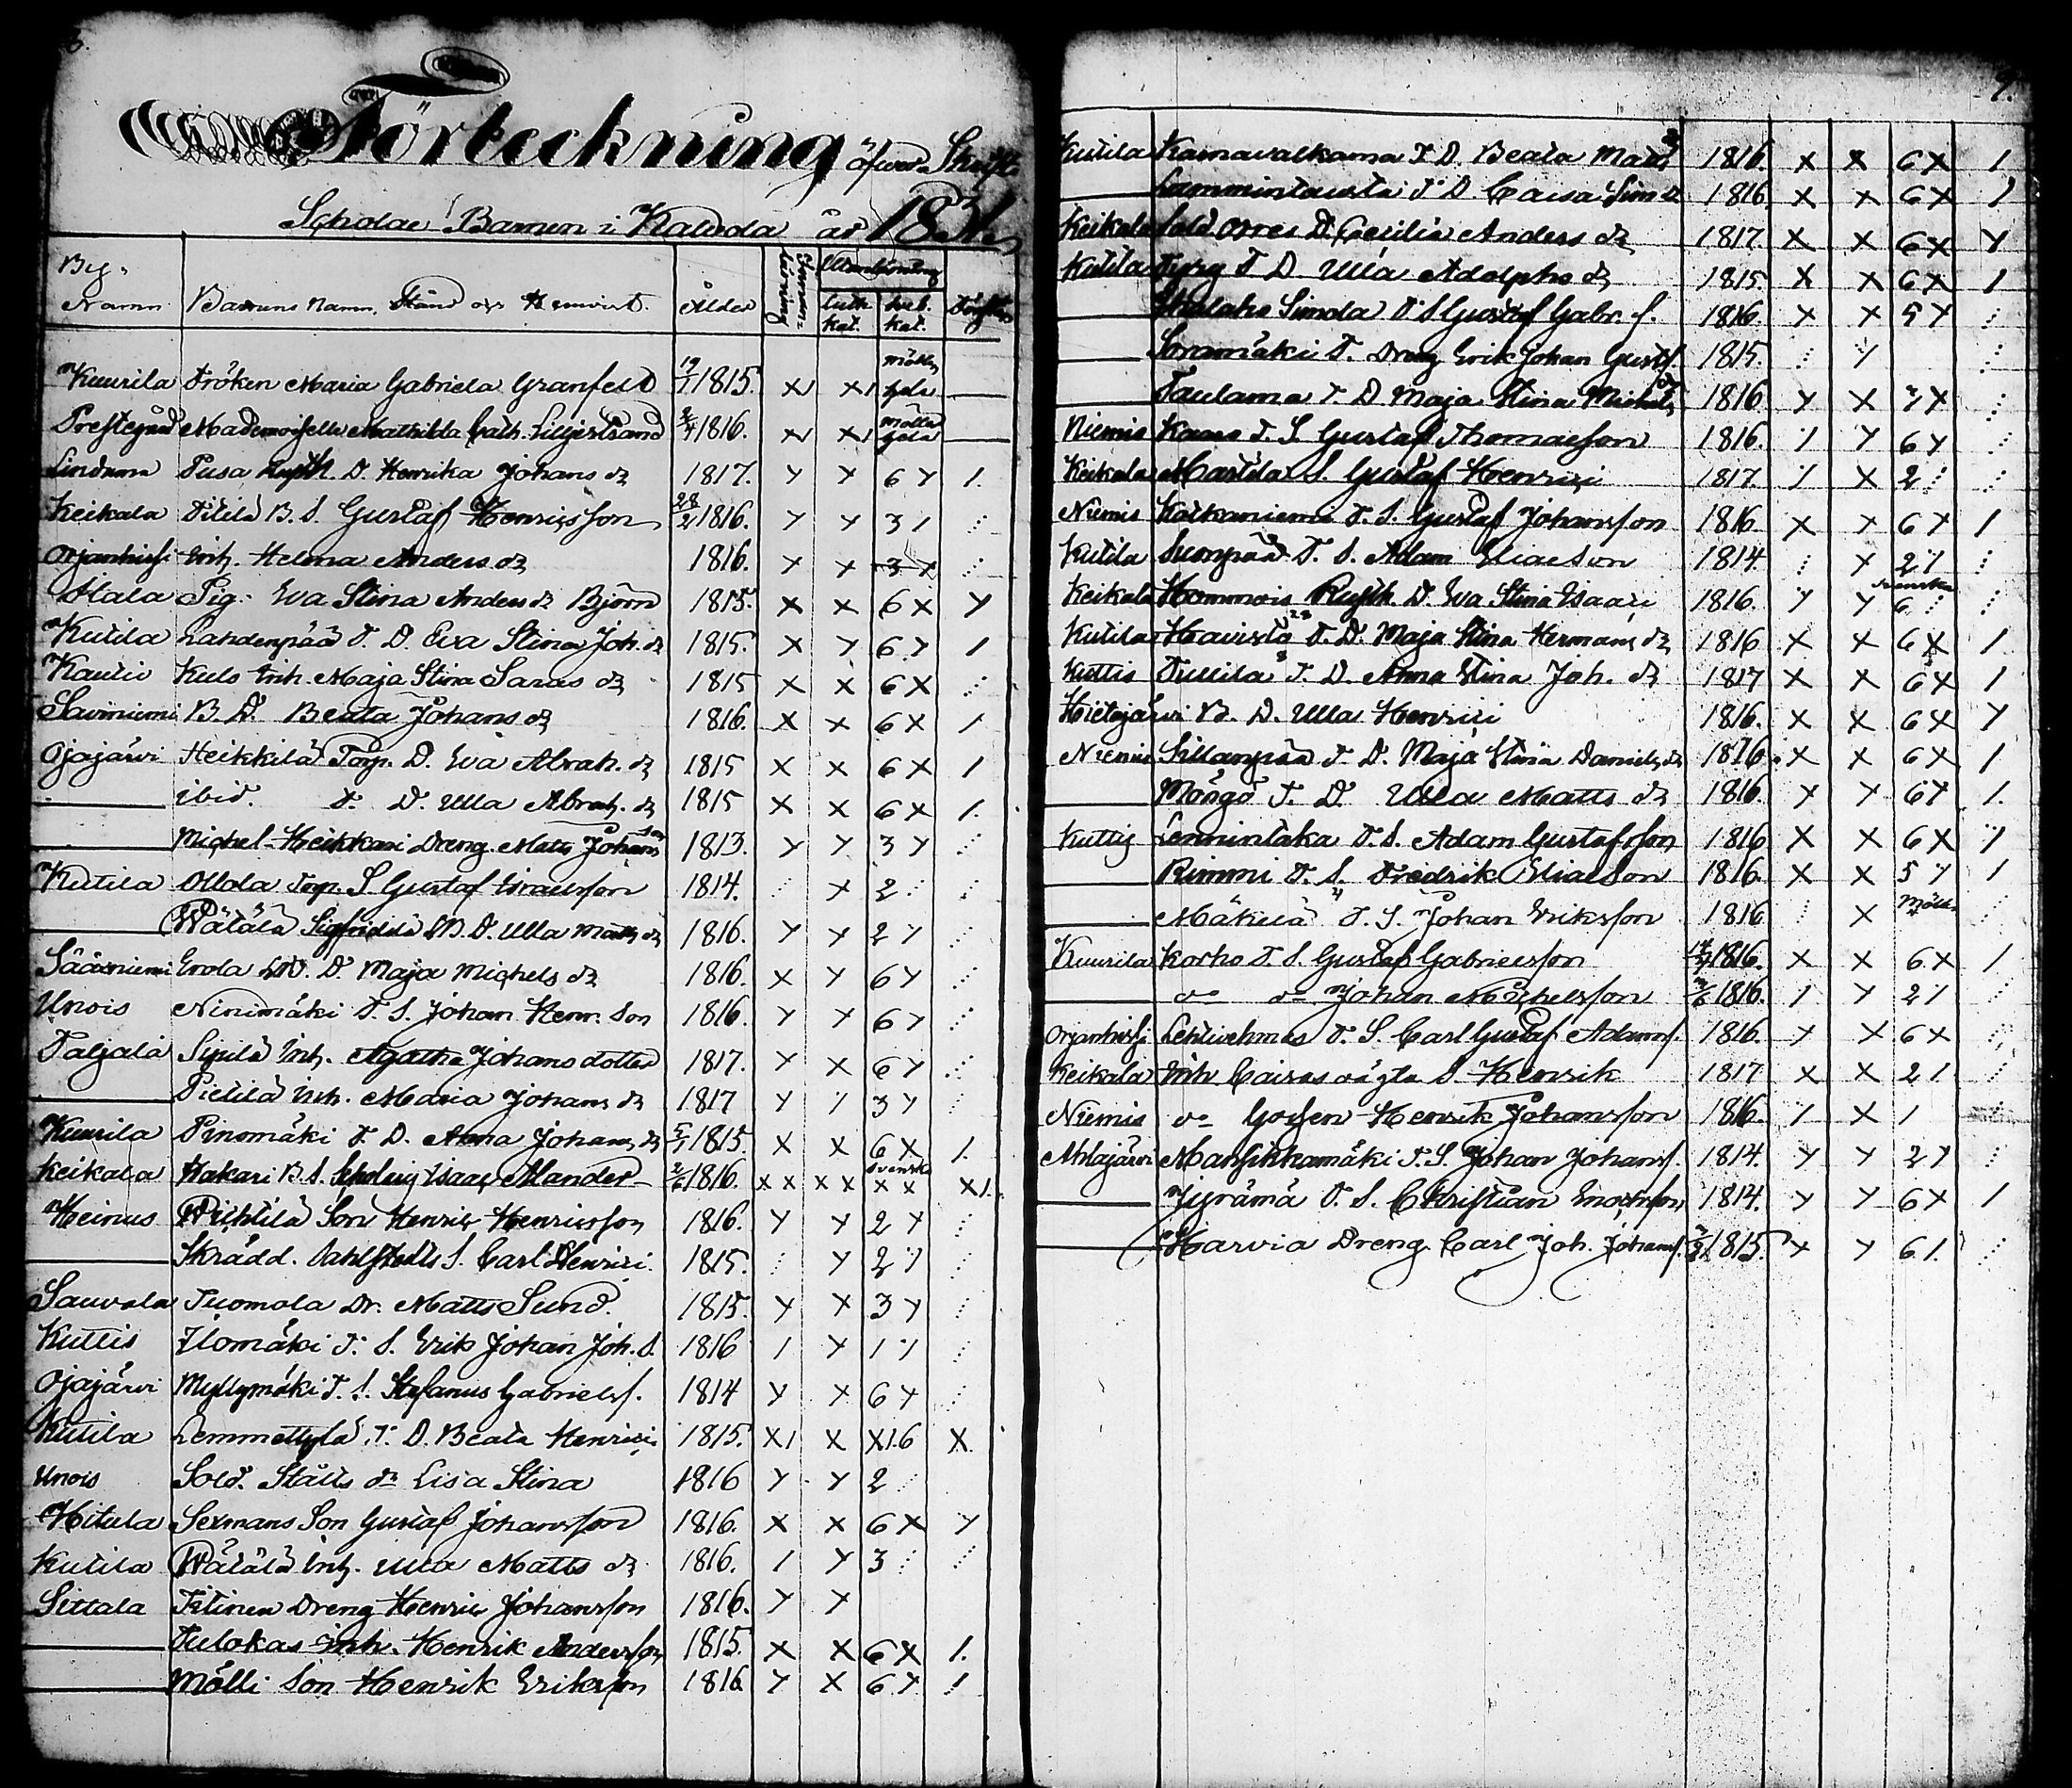 Förteckning öfwer Skrift
Scholae Barnen i Kalvola år 1831
By, Namn Barnens Namn, Stånd och Hemvist. Ålder Innan läsning Utanläsning Luth. kat. Sveb. kat. Förstånd
Kuurila Fröken Maria Gabriela Granfelt 19/7 1815. x/ x/ hela —
Prestegård Mademoiselle Mathilda Cath. Lilljestrand 1816. x/ x/ —
Lindema Pusa D. Henrika Johans dr 1817. y y 6 y 1.
Keikala Pitilä B. S. Gustaf Henricsson 28/2 1816. y y 3 1 ⋮
Orjanhirsi Inh. Helena Anders dr 1816. y x 3 x ⋮
Ahlala Pig. Eva Stina Anders dr Björn 1815. x x 6 x y
Kutila Lahdenpää T. D. Eva Stina Joh. dr 1815. x y 6 y 1
Kautio Kulo Inh. Maja Stina Saras dr 1815 x x 6 x ⋮
Saviniemi B. D. Beata Johans dr 1816. x x 6 x 1
Ojajärvi Heikkilä Torp. D. Eva Abrah. dr 1815 x x 6 x 1
— ibid. T. D. Ulla Abrah. dr 1815 x x 6 x 1.
— Michel-Heikkari Dreng Matts Johansson 1813. y y 3 y ⋮
Kutila Ollola Torp. S. Gustaf Israelsson 1814. ⋮ x 2 ⋮ ⋮
— Wätälä Sigfridilä B. D. Ulla Matts dr 1816. y y 2 y ⋮
Sääxniemi Erola D. Maja Michels dr 1816. x y 6 y ⋮
Unois Ninimäki T. S. Johan Henr. Son 1816. y y 6 y ⋮
Taljala Sipilä Inh. Agatha Johans dotter 1817. y x 6 y ⋮
— Pietilä Inh. Maria Johans dr 1817 y 1 3 y ⋮
Kuurila Pinomäki T. D. Anna Johans dr 5/7 1815. x x 6 x 1.
Keikala Hakari B. S. Isaac Alander 2/6 1816. x x x x svenska x x x 1.
Heinus Wichtilä Son Henric Henricsson 1816. y y 2 y ⋮
— Skrädd. Dahlstedts S. Carl Henrici 1815. ⋮ y 2 1 ⋮
Sauvala Tuomola Dr. Matts Sund. 1815. y x 3 y ⋮
Kuttis Ilomäki T. S. Erik Johan Joh. S. 1816 1 y 1 1 ⋮
Ojajärvi Myllymäki T. S. Stefanus Gabrielsf. 1814 y x 6 y ⋮
Kutila Lemmettylä T. D. Beata Henrici 1815. x 1 x x 1.6 x.
Unois Sold. Ståhls dr Lisa Stina 1816 y y 2 ⋮
Hitula Sexmans Son Gustaf Johansson 1816. x x 6 x y
Kutila Wätälä Inh. Ulla Matts dr 1816. 1 y 3 ⋮ ⋮
Sittala Titinen Dreng Henric Johansson 1816. y y
— Tulokas Inh. Henrik Andersson 1815. x x 6 x 1.
— Mölli Son Henrik Eriksson 1816 y x 6 y 1
9.
Kutila Karnavalkama T. D. Beata Matts dr 1816. x x 6 x 1
— Lammintausta T. D. Caisa Sim dr 1816. x x 6 x 1
Keikala Sold. Orres D. Cecilia Anders dr 1817 x x 6 x y
Kutila Tyry T. D. Ulla Adolphs dr 1815. x x 6 x 1
— Simola T. S. Gustaf Gabr. f. 1816. y x 5 y ⋮
— Sorramäki T. Dreng Erik Johan Gustf. 1815. ⋮ y ⋮
— Taulama T. D. Maja Stina Michels dr 1816 y x 7 x ⋮
Niemis Kaars T. S. Gustaf Thomasson 1816. 1 y 6 y ⋮
Keikala Marttila S. Gustaf Henrici 1817. 1 x 2 ⋮ ⋮
Niemis Kotkaniemi T. S. Gustaf Johansson 1816 x x 6 y 1
Kutila Suonpää T. S. Adam Eliaeson 1814. ⋮ x 2 1 ⋮
Keikala Hommois Rusth. D. Eva Stina Isaaci 1816. y y svenska 6 ⋮ ⋮
Kutila Havisto T. D. Maja Stina Hermans dr 1816 x x 6 x 1.
Kuttis Tullila T. D. Anna Stina Joh. dr 1817 x x 6 x 1
Hietajärvi B. D. Ulla Henrici 1816. x x 6 x y
Niemis Sillanpää T. D. Maja Stina Daniels dr 1816. x x 6 x 1
— Mångs T. D. Ulla Matts dr 1816. y y 6 y 1.
Kuttis Lemmintaka T. S. Adam Gustafsson 1816 x x 6 x 1
— Rimmi T. S. Fredrik Eliaeson 1816. x x 5 1 1
— Mäkilä T. S. Johan Eriksson 1816 ⋮ x ⋮
Kuurila Korho T. S. Gustaf Gabrielsson 1816. x x 6 x 1
— do do Johan Michelsson 1816. 1 y 2 1 ⋮
Orjanhirsi Lehtivehmas T. S. Carl Gustaf Adamsf. 1816. y x 6 x ⋮
Keikala Inh. Caisas oägta S. Henrik 1817 x x 2 1 ⋮
Niemis do Henrik Johansson 1816. 1 x 1
Ahlajärvi Mansikkamäki T. S. Johan Johansf. 1814. y y 2 y ⋮
— Jyrämä T. S. Christian Enochson 1814. y y 6 x 1
— Harvia Dreng Carl Joh. Johansf. 1815. y y 6 1. ⋮